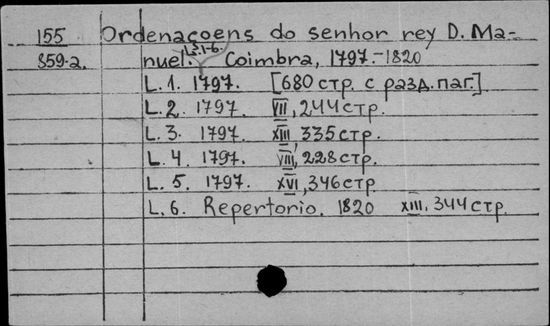 155 Ordenaçoens do senhor rey D. Ma-
L.1-6.
859-a. nuel. Coimbra, 1797.-1820
L. 1. 1797. [680 стр. с разд. паг.]
L. 2. 1797. VII, 244 стр.
L. 3. 1797. XIII, 335 стр.
L. 4. 1797. VIII, 228 стр.
L. 5. 1797. XVI, 346 стр
L. 6. Repertorio. 1820 XIII. 344 стр.